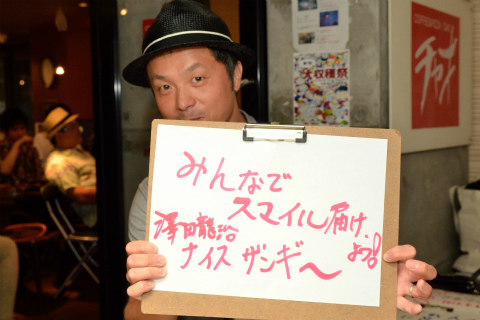 みんなで
スマイル届け
よう!
澤田龍治
ナイス ザンギ〜
大収穫祭
チャオ